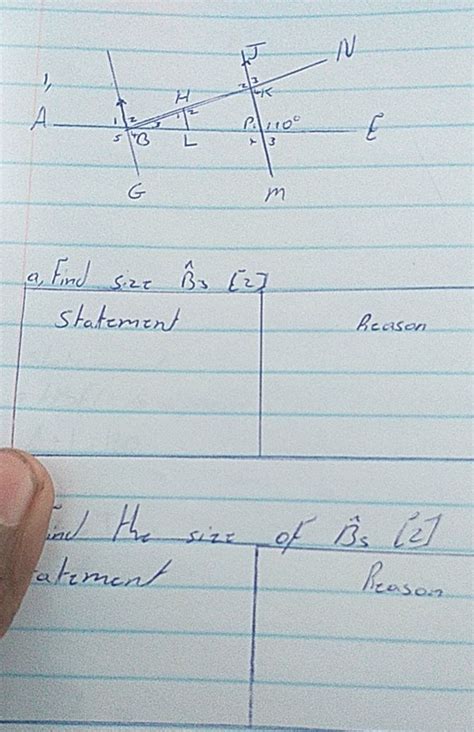 J
N
1,
H
2 3
4 K
1 2
A
1 2
P1 110°
E
5 4 B 3
L
2 3
G
M
a, Find size B̂3 [2]
Statement
Reason
ind the size of B̂5 [2]
atement
Reason